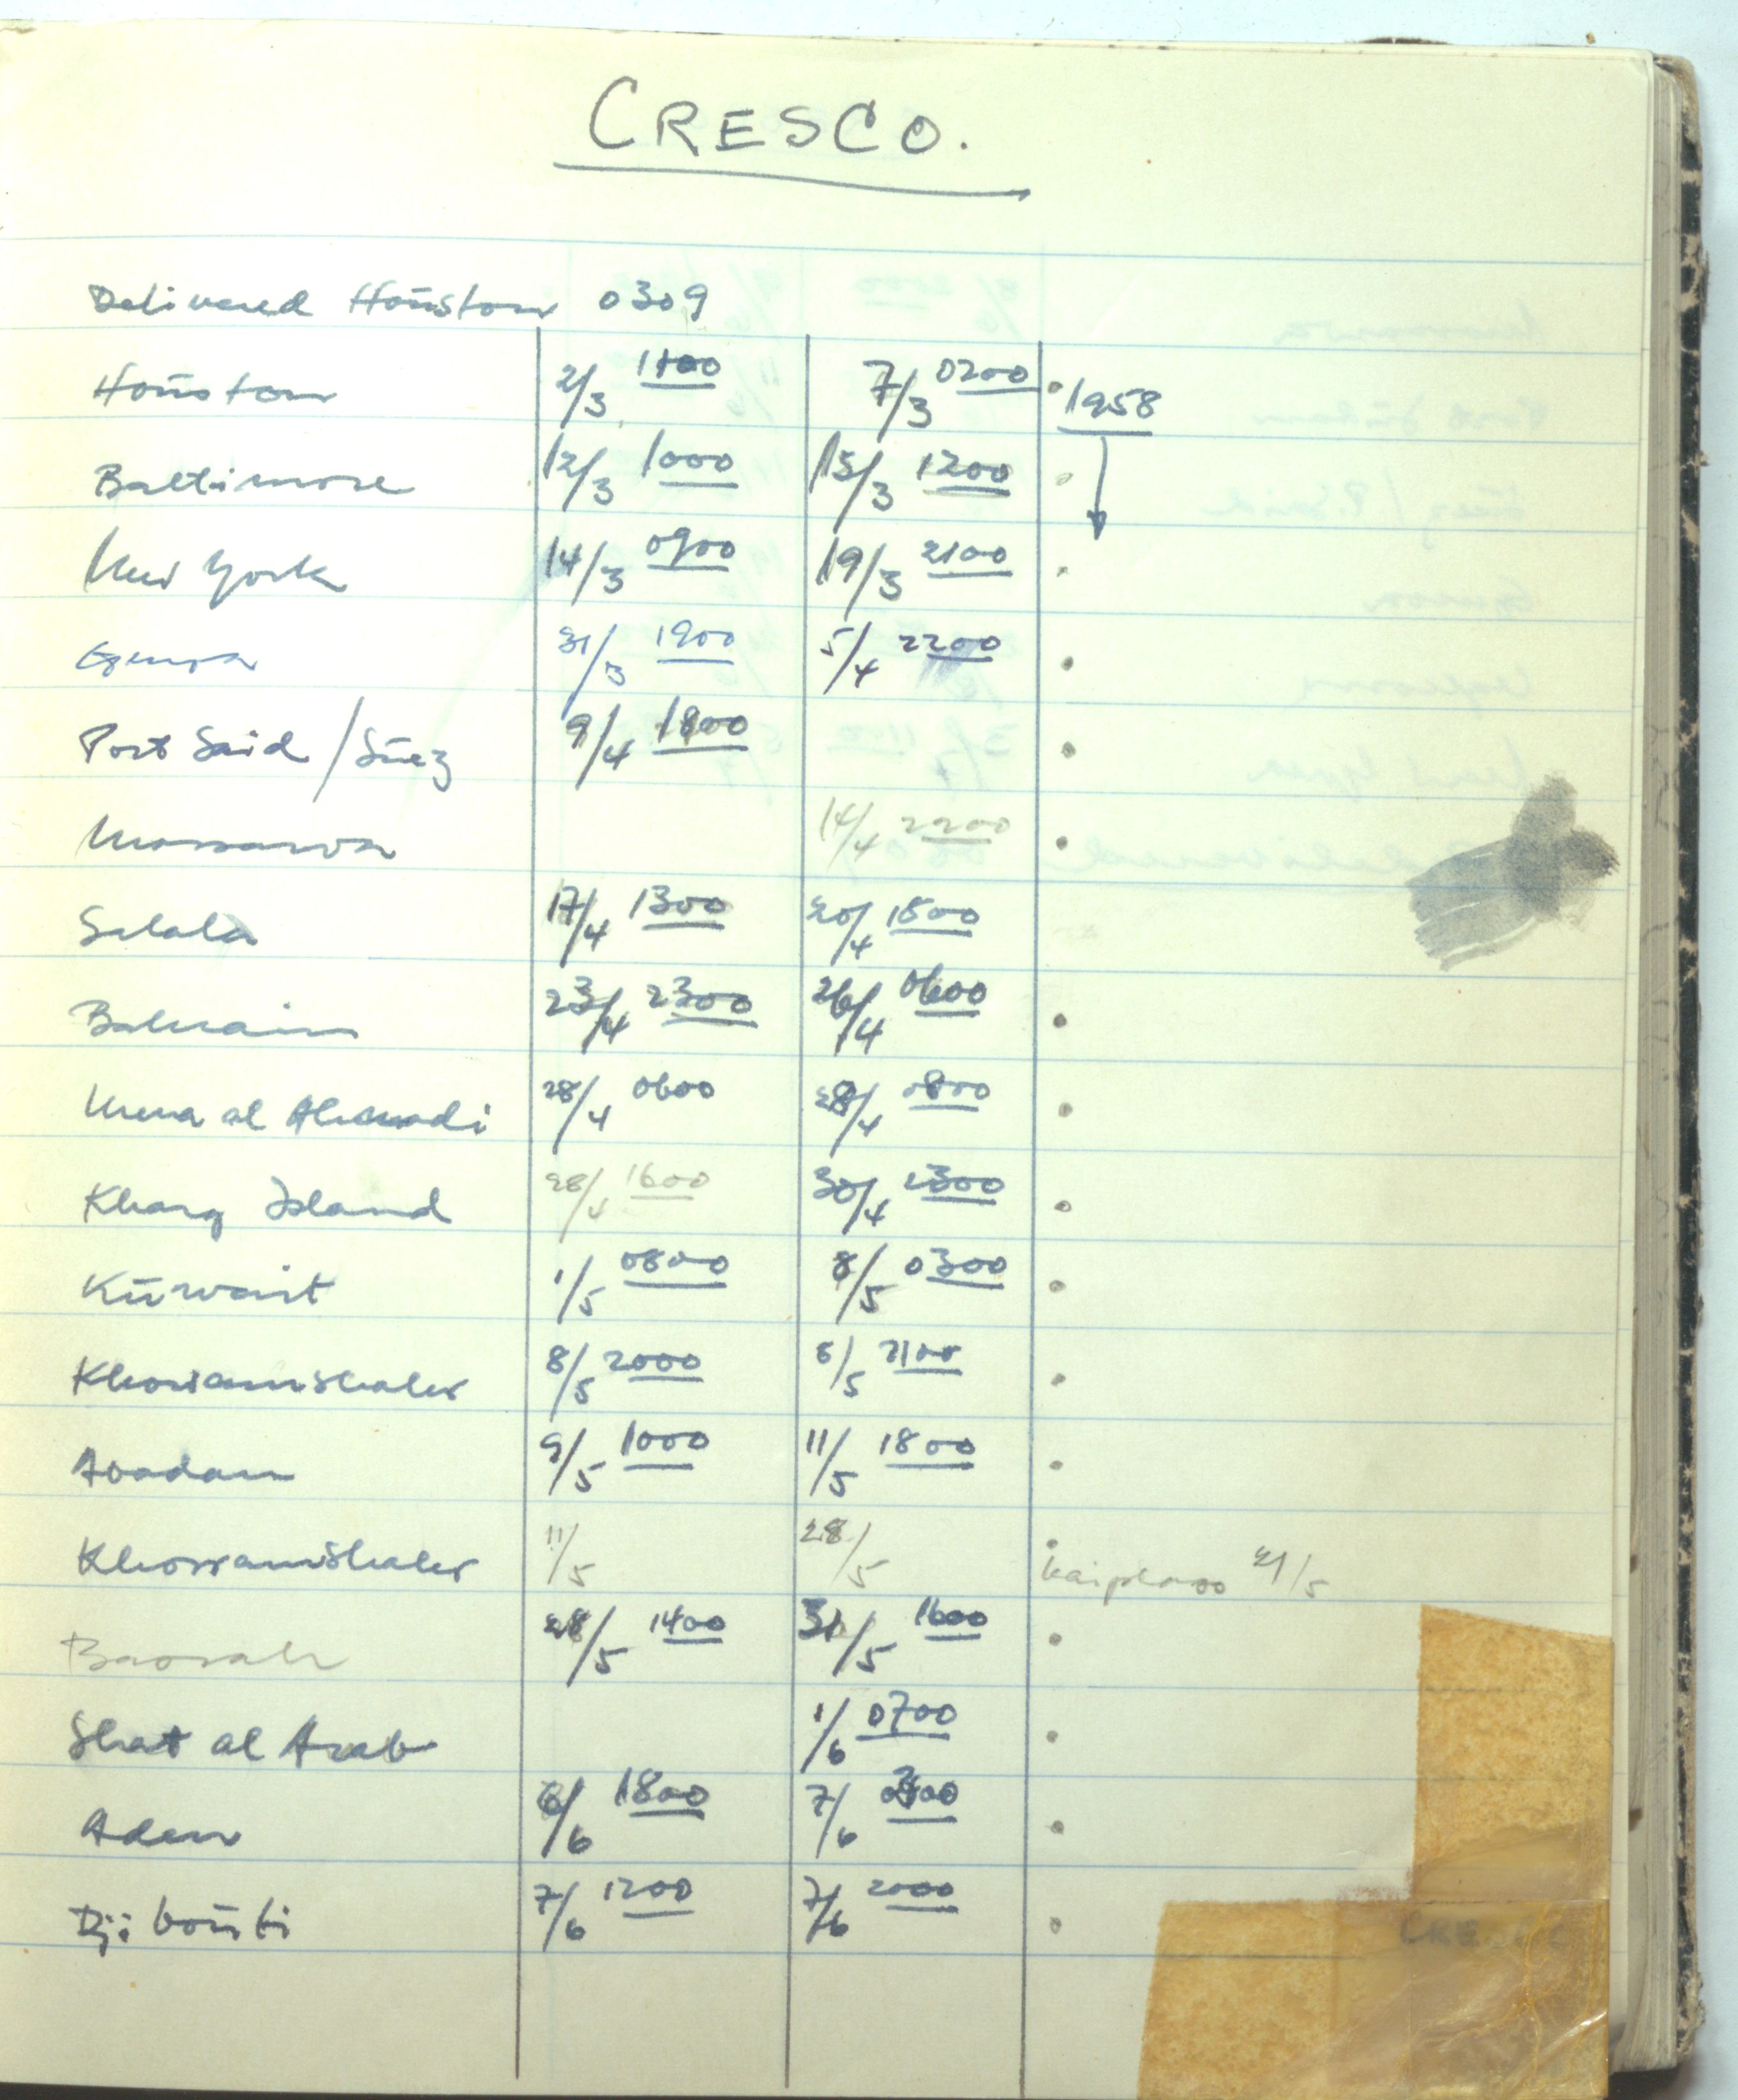 CRESCO.
Delivered Houston 0309
Houston 2/3 1100 7/3 0200 1958
Baltimore 12/3 1000 15/3 1200
New York 14/3 0900 19/3 2100
Genoa 31/3 1900 5/4 2200
Port Said / Suez 9/4 1800
Massawa 14/4 2200
Salala 17/4 1300 20/4 1500
Bahrain 23/4 2300 26/4 0600
Mena al Ahmadi 28/4 0600 28/4 0800
Kharg Island 28/4 1600 30/4 2300
Kuwait 1/5 0800 8/5 0300
Khorramshahr 8/5 2000 8/5 2100
Abadan 9/5 1000 11/5 1800
Khorramshahr 11/5 28/5 kaiplass 21/5
Basrah 28/5 1400 31/5 1600
Shat al Arab 1/6 0700
Aden 6/6 1800 7/6
Djibouti 7/6 1200 7/6 2000